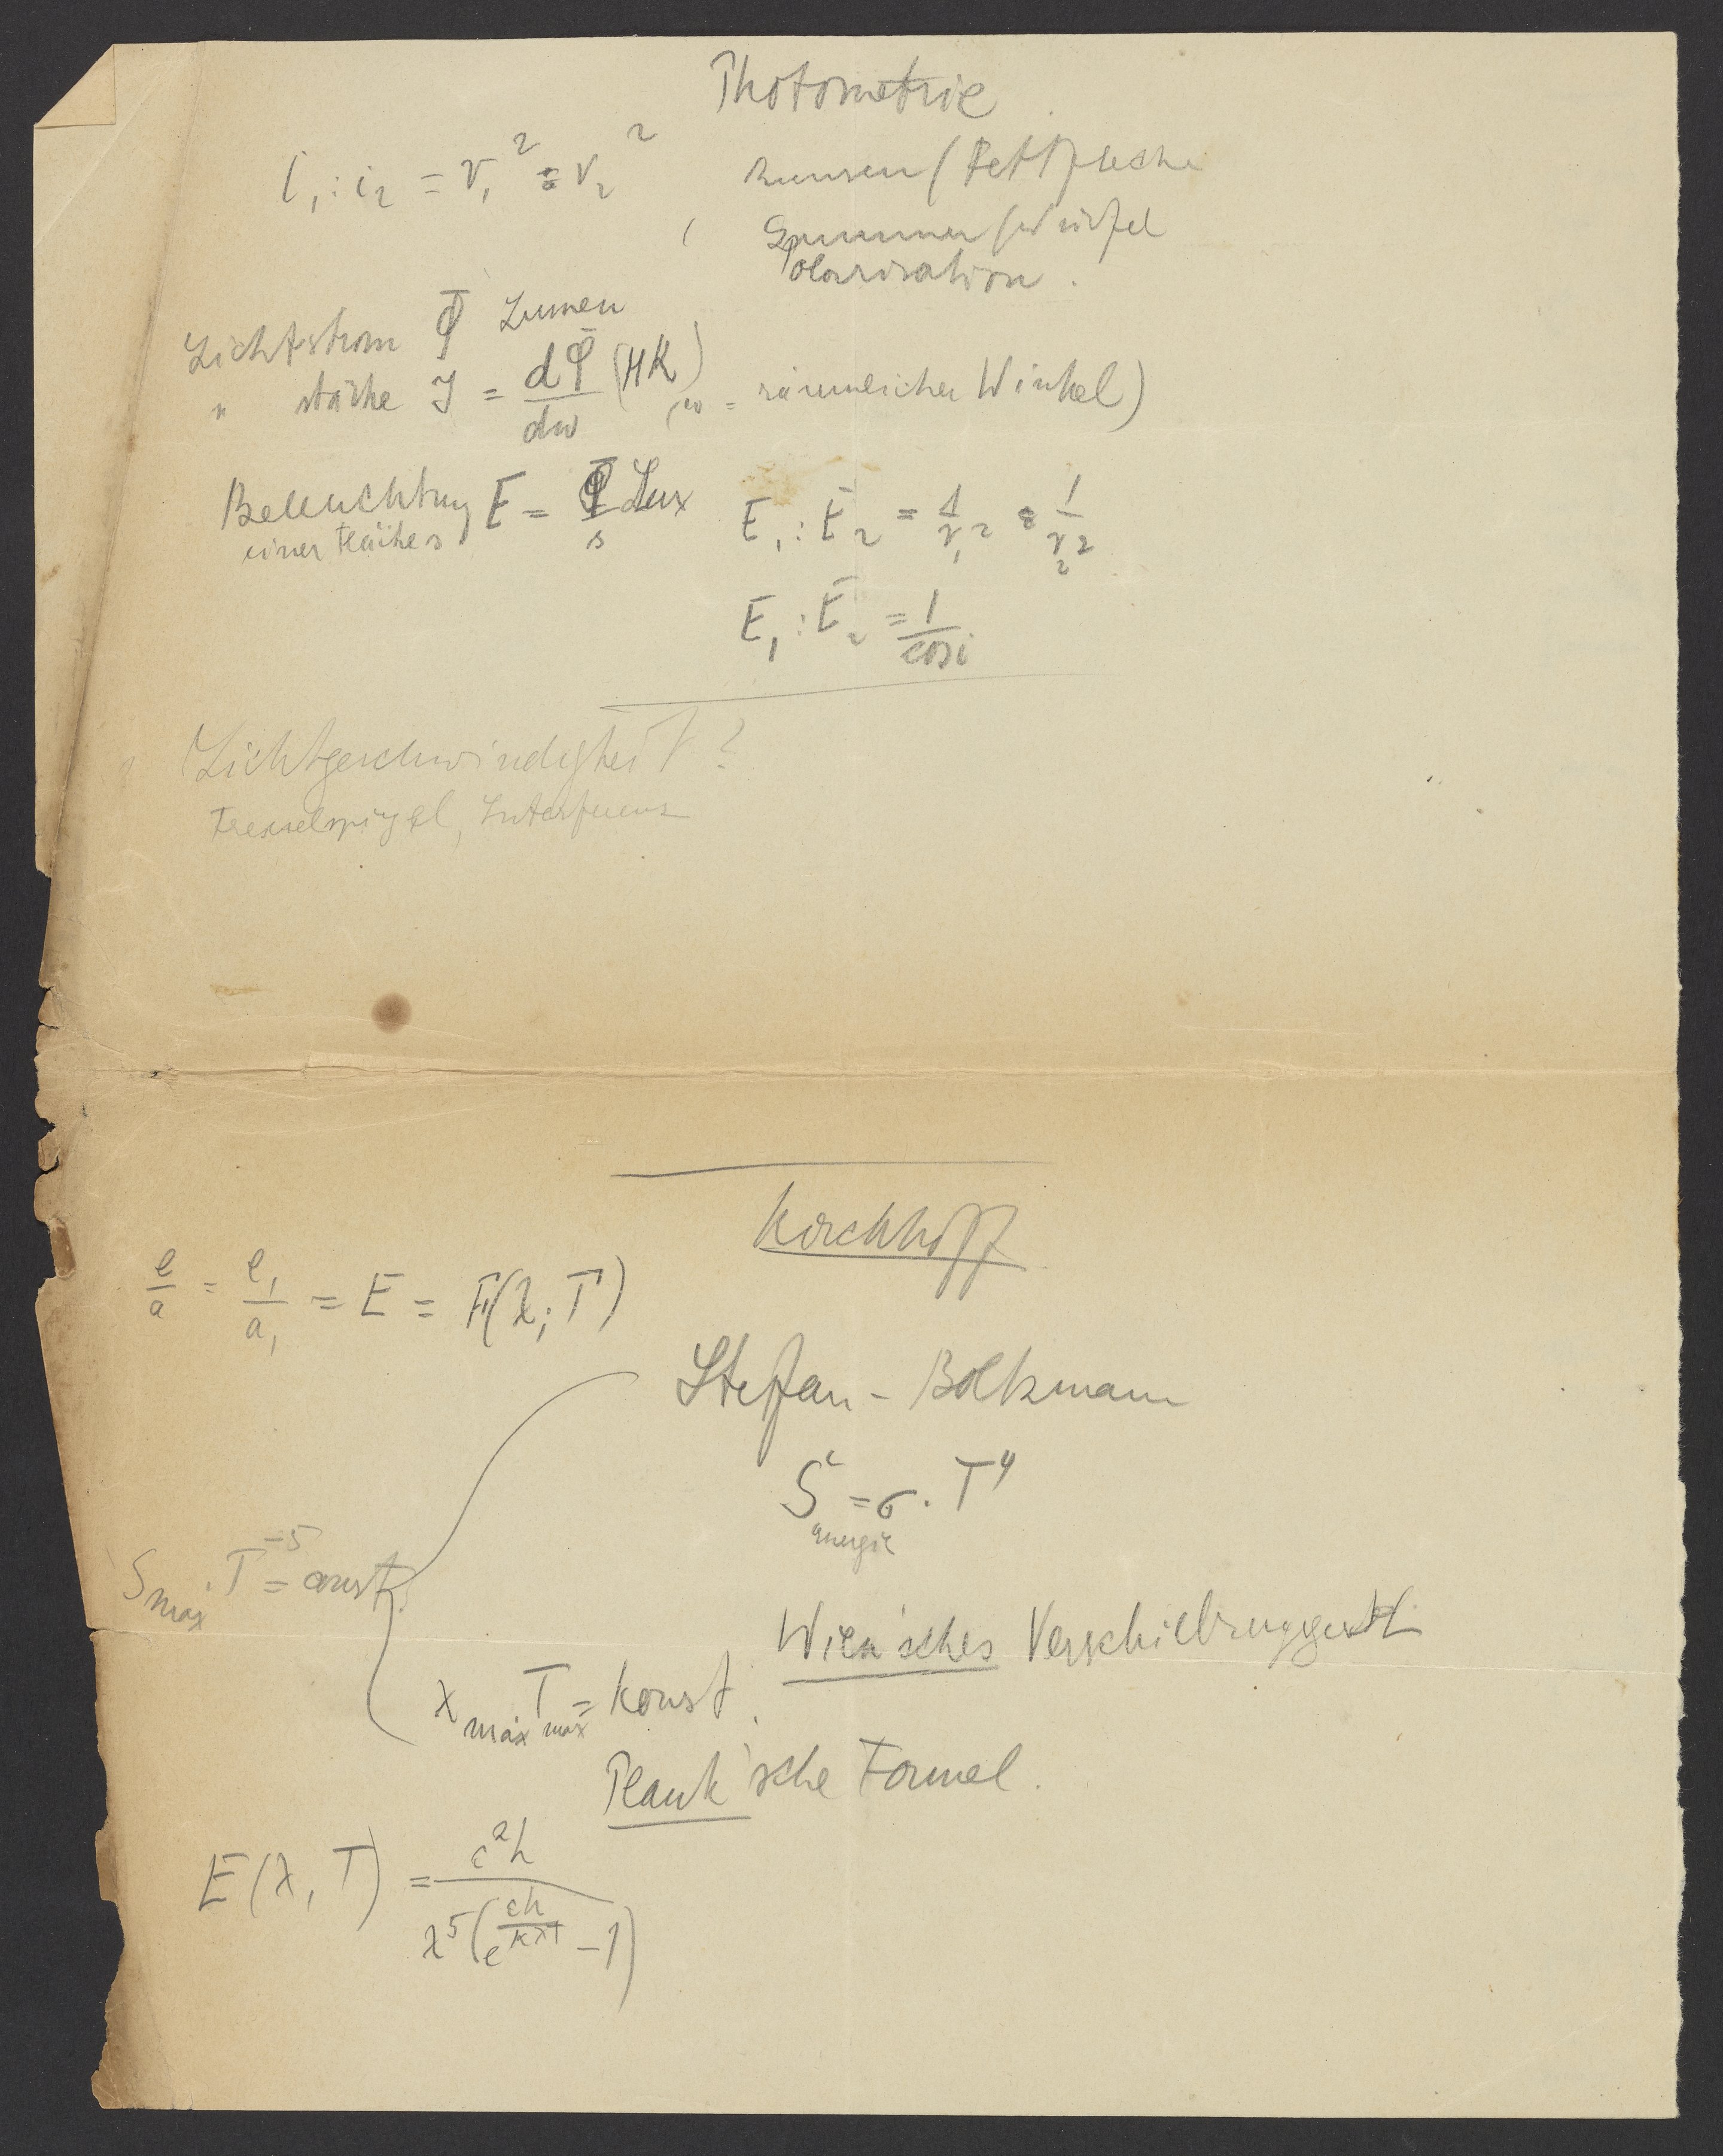 Photometrie
i₁ : i₂ = r₁² : r₂²
Bunsen (Fettflecke
Würfel
Polarisation.
Lichtstrom Φ Lumen
" stärke J = dΦ/dω (HK) (ω = räumlicher Winkel)
Beleuchtung E = Φ/s Lux
einer Fläche s
E₁ : E₂ = 1/r₁² : 1/r₂²
E₁ : E₂ = 1/cos i
Lichtgeschwindigkeit ?
Fresnelspiegel, Interferenz
Kirchhoff
e/a = e₁/a₁ = E = F(λ; T)
Steffan - Boltzmann
S = σ · T⁴
energie
S max · T⁻⁵ = const.
Wien'sches Verschiebungsgesetz
λ max T max = konst.
Plank'sche Formel.
E(λ, T) = c²h / λ⁵(e^(ch/kλT) - 1)